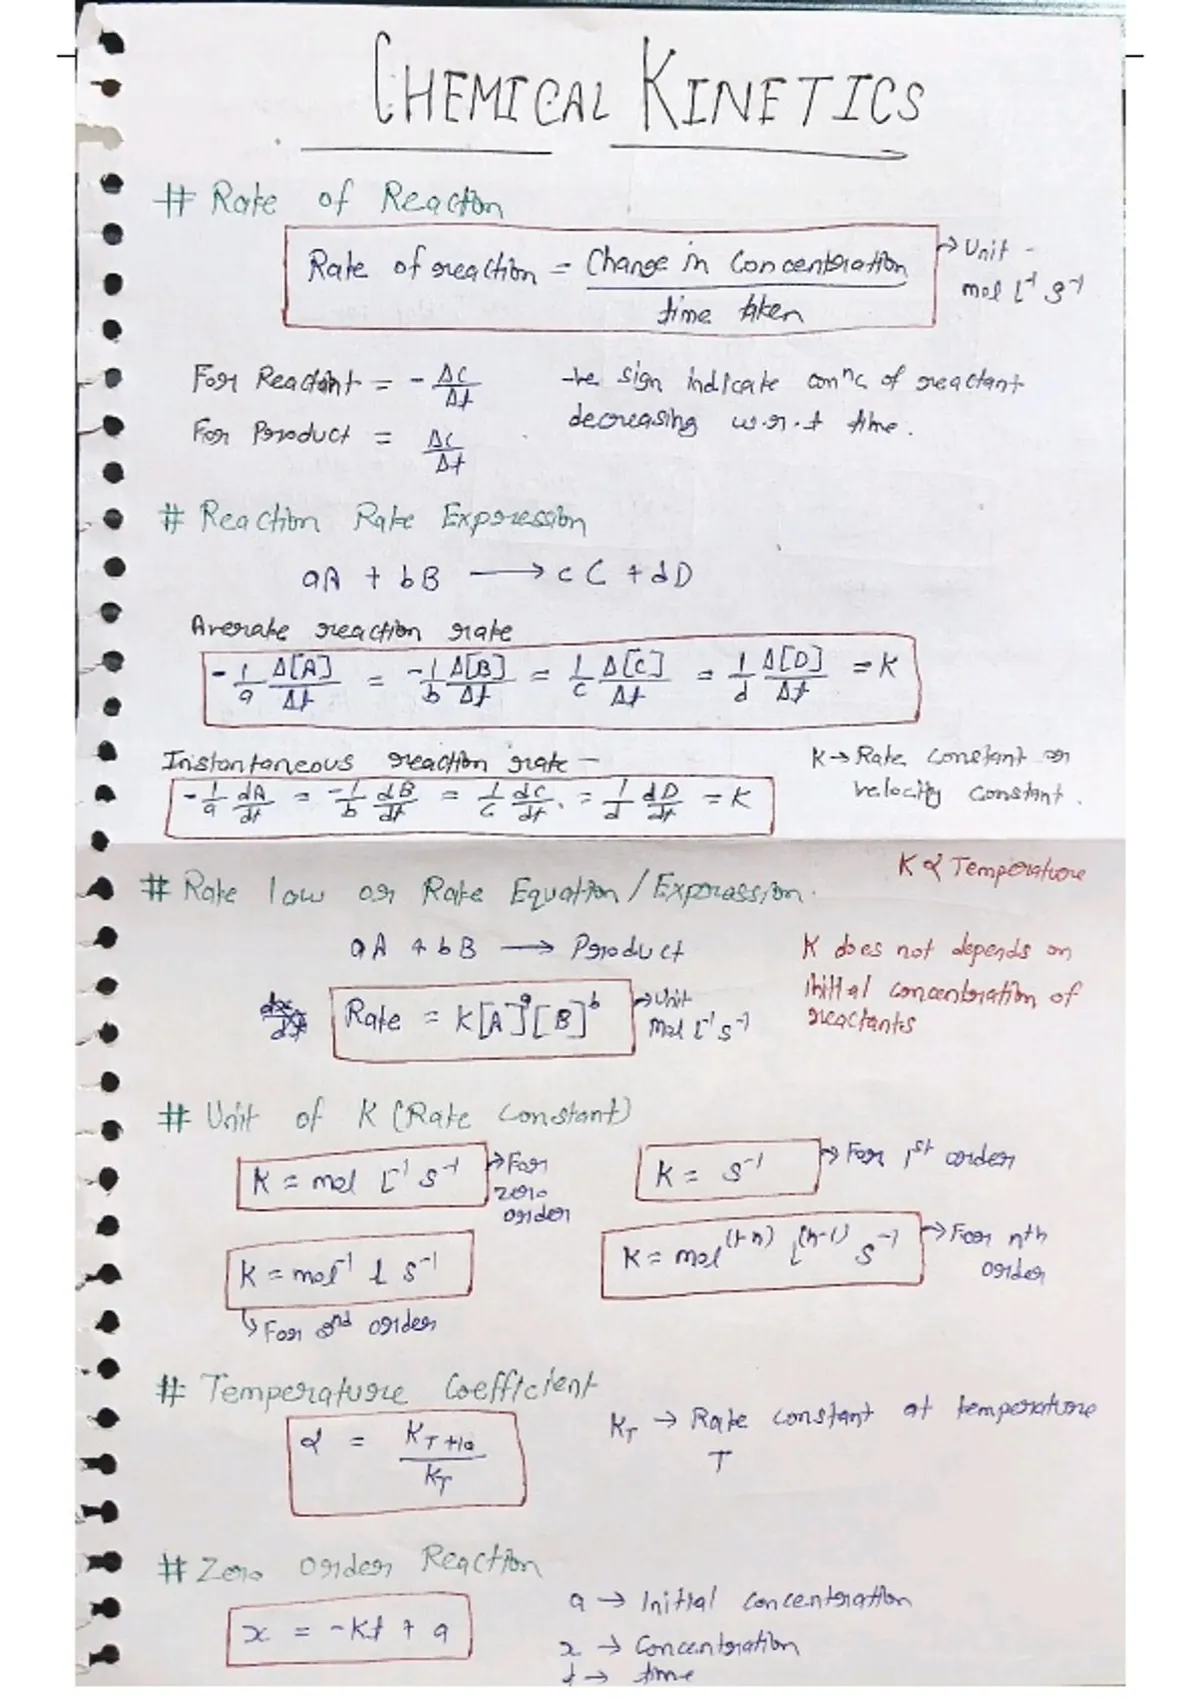 CHEMICAL KINETICS
# Rate of Reaction
Rate of reaction = Change in Concentration / time taken → Unit - mol L⁻¹ S⁻¹
For Reactant = - ΔC/Δt -ve sign indicate conⁿc of reactant
decreasing w.r.t time.
For Product = ΔC/Δt
# Reaction Rate Expression
aA + bB ⟶ cC + dD
Averake reaction rate
-1/a Δ[A]/Δt = -1/b Δ[B]/Δt = 1/c Δ[C]/Δt = 1/d Δ[D]/Δt = K
Instantaneous reaction rate -
-1/a dA/dt = -1/b dB/dt = 1/c dC/dt = 1/d dD/dt = K
K → Rate constant or
velocity constant.
K α Temperature
# Rate law or Rate Equation / Expression.
aA + bB ⟶ Product
Rate = K[A]ᵃ[B]ᵇ → Unit
mol L⁻¹ s⁻¹
K does not depends on
initial concentration of
reactants
# Unit of K (Rate constant)
K = mol L⁻¹ S⁻¹ → For
zero
order
K = S⁻¹ → For 1st order
K = mol⁻¹ L S⁻¹
↳ For 2nd order
K = mol⁽¹⁻ⁿ⁾ L⁽ⁿ⁻¹⁾ S⁻¹ → For nth
order
# Temperature Coefficient
α = K_T+10 / K_T
K_T → Rate constant at temperature
T
# Zero order Reaction
x = -Kt + a
a → Initial concentration
x → Concentration
t → time